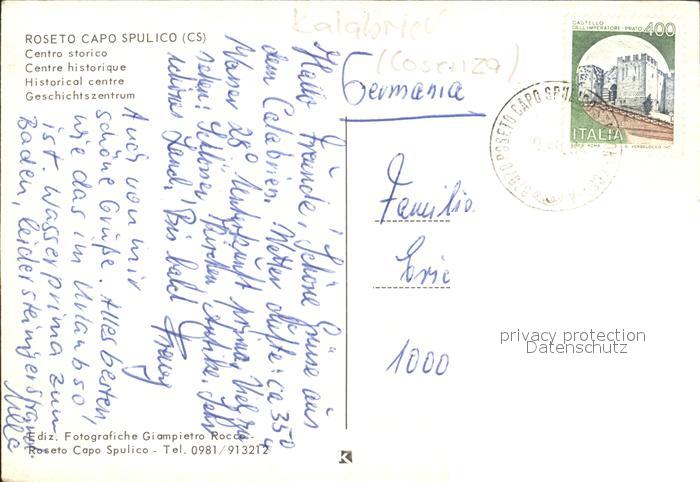 ROSETO CAPO SPULICO (CS)
Centro storico
Centre historique
Historical centre
Geschichtszentrum
Kalabrien
(Cosenza)
CASTELLO
DELL'IMPERATORE - PRATO 400
ITALIA
ROSETO CAPO SPULICO
Germania
Familie
Eric
1000
privacy protection
Datenschutz
Hallo Freunde, Schöne Grüsse aus
dem Calabrien. Wetter Lüfte: ca 35°
Wasser 28° Unterkunft prima, Viel zu
sehen, Schlösser Kirchen Antike. Sehr
schönes Land. Bis bald
Auch von mir
schöne Grüße. Alles bestens,
wie das im Urlaub so
ist. Wasser prima zum
Baden, leider steiniger Strand.
Ediz. Fotografiche Giampietro Rocco -
Roseto Capo Spulico - Tel. 0981/913212
K